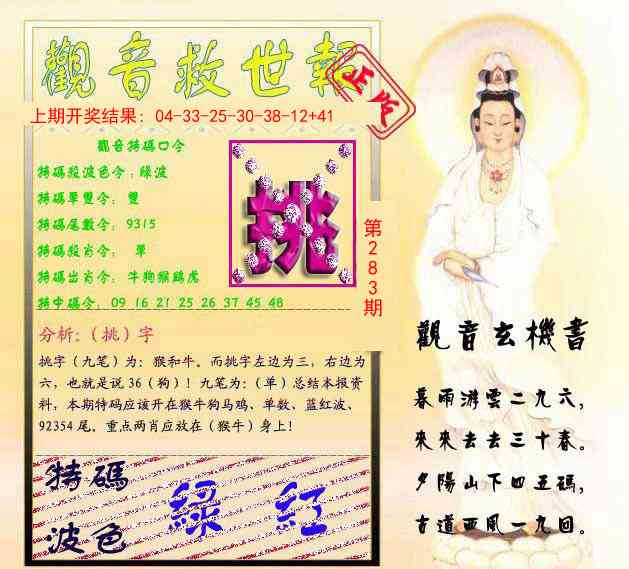 觀音救世報
正版
上期开奖结果：04-33-25-30-38-12+41
觀音特碼口令
特碼殺波色令：綠波
特碼單雙令：雙
特碼尾數令：9315
特碼殺肖令： 單
特碼出肖令：牛狗猴鷄虎
特中碼令：09 16 21 25 26 37 45 48
挑
第283期
分析：（挑）字
挑字（九笔）为：猴和牛。而挑字左边为三，右边为
六，也就是说 36（狗）！九笔为：（单）总结本报资
料，本期特码应该开在猴牛狗马鸡、单数、蓝红波、
92354 尾。重点两肖应放在（猴牛）身上！
特碼
波色
綠 紅
觀音玄機書
暮雨游雲二九六，
來來去去三十春。
夕陽山下四五碼，
古道西風一九回。